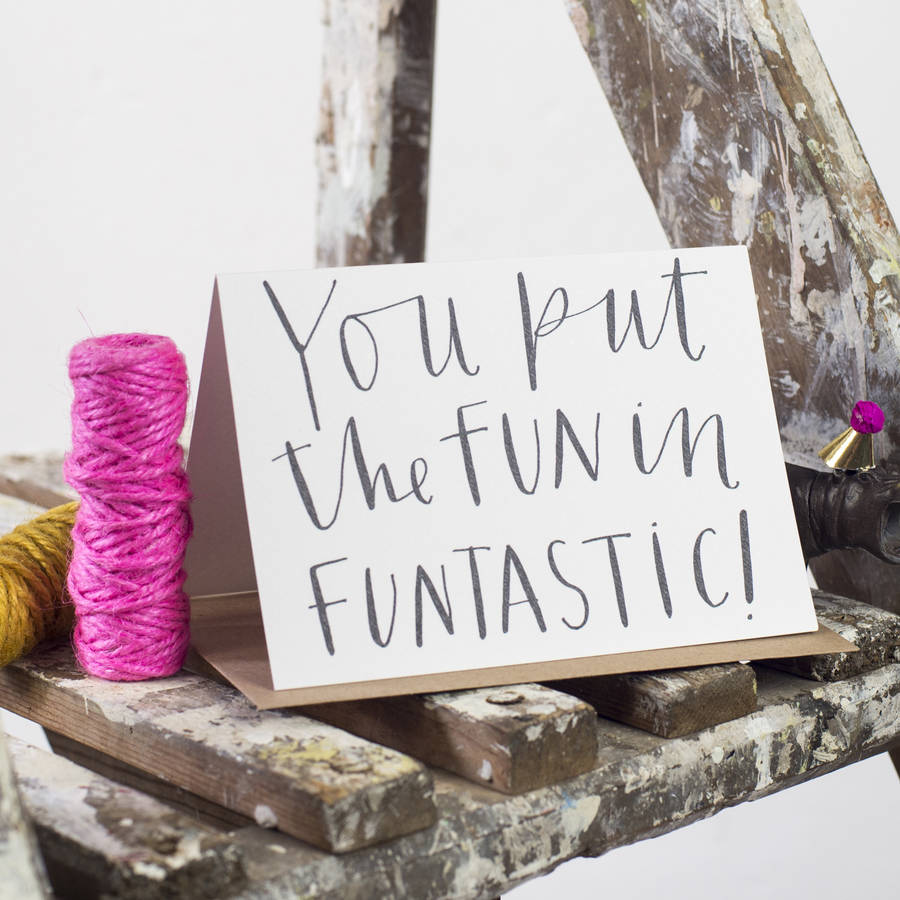 You put
the FUN in
FUNTASTIC!